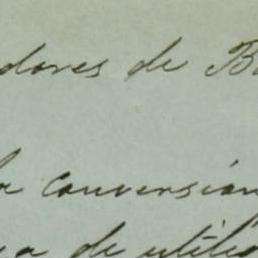 dores de B
la conversion
a de utilid